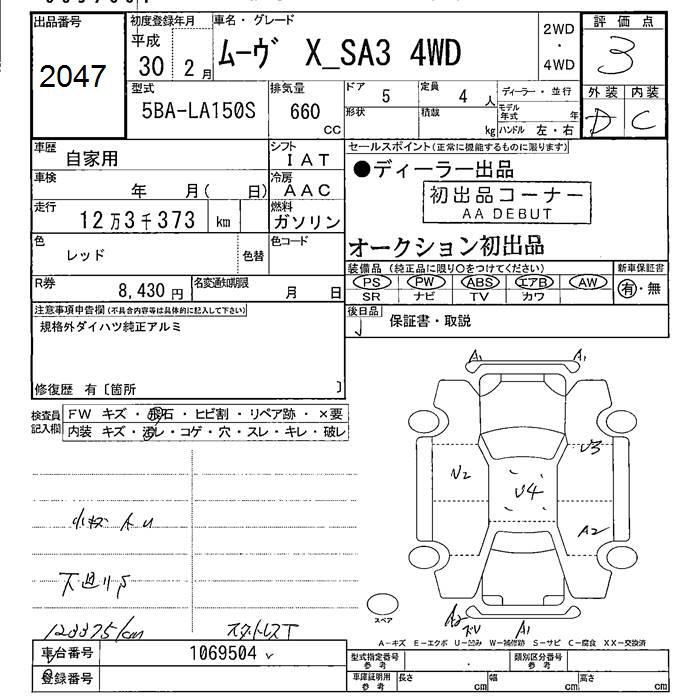 出品番号
2047
初度登録年月
平成
30 2月
車名・グレード
ムーヴ X_SA3 4WD
2WD
・
4WD
評価点
3
外装 内装
D C
型式
5BA-LA150S
排気量
660
cc
ドア
5
定員
4 人
ディーラー・並行
形状
積載
kg
モデル年式 年
ハンドル 左・右
車歴
自家用
シフト
IAT
車検
年 月( 日)
冷房
AAC
走行
12万3千373 km
燃料
ガソリン
色
レッド
色替
色コード
R券
8,430円
名変通知期限
月 日
セールスポイント(正常に機能するものに限ります)
●ディーラー出品
初出品コーナー
AA DEBUT
オークション初出品
装備品(純正品に限り○をつけてください)
新車保証書
PS PW ABS エアB AW
有・無
SR ナビ TV カワ
後日品
保証書・取説
注意事項申告欄(不具合内容等は具体的に記入して下さい)
規格外ダイハツ純正アルミ
修復歴 有〔箇所 〕
検査員
記入欄
FW キズ・飛石・ヒビ割・リペア跡・×要
内装 キズ・汚レ・コゲ・穴・スレ・キレ・破レ
A1 A1
U3
U2
U4
A2
A2
A1
スペア
A-キズ E-エクボ U-凹み W-補修跡 S-サビ C-腐食 XX-交換済
車台番号
1069504
登録番号
型式指定番号
参考
類別区分番号
参考
車庫証明用
参考
長さ cm
幅 cm
高さ cm